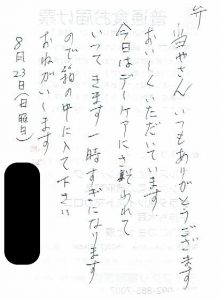 弁
当やさん いつもありがとうございます
おいしくいただいています
今日はデーケアにさそわれて
いってきます 一時すぎになります
ので箱の中に入て下さい
おねがいします
8月23日(日曜日)